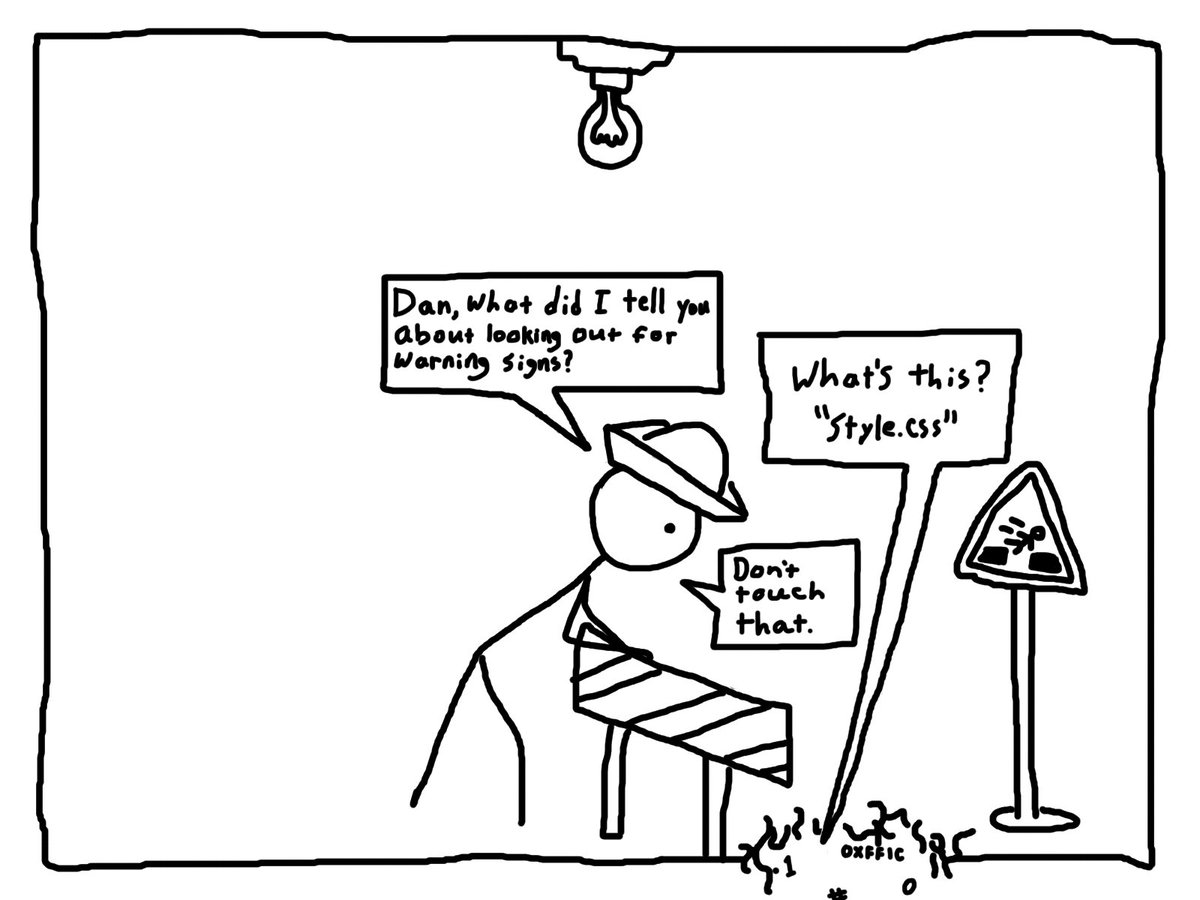 Dan, what did I tell you
about looking out for
warning signs?
What's this?
"Style.css"
Don't
touch
that.
0XFF1C
.1
#
0